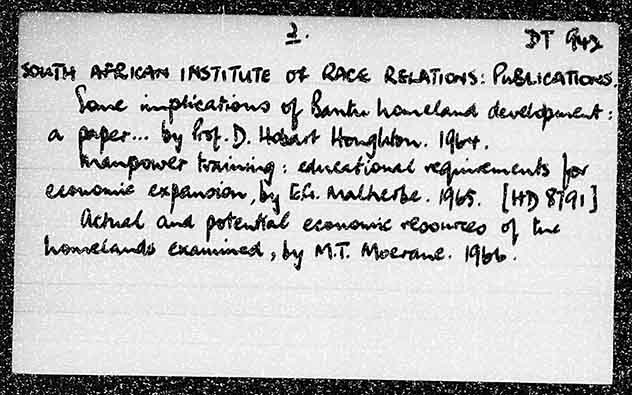 2.
DT 942
SOUTH AFRICAN INSTITUTE OF RACE RELATIONS: PUBLICATIONS.
Some implications of Bantu homeland development:
a paper... by Prof. D. Hobart Houghton. 1964.
Manpower training: educational requirements for
economic expansion, by E.G. Malherbe. 1965. [HD 8791]
Actual and potential economic resources of the
homelands examined, by M.T. Moerane. 1966.